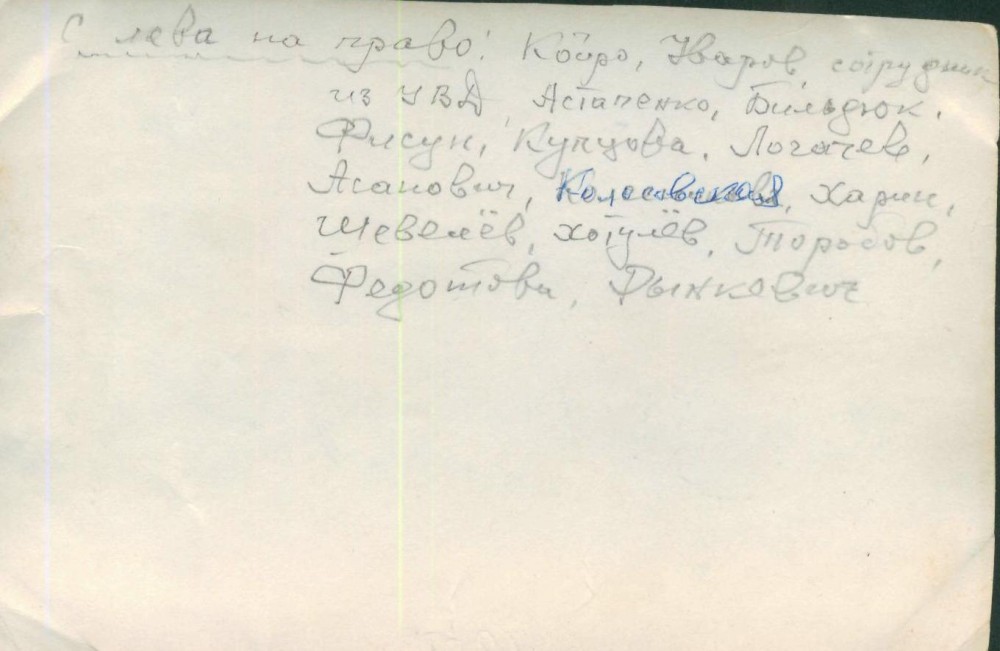 С лева на право: Койро, Уваров, сотрудник
из УВД, Астапенко, Бильдюк,
Фисун, Купцова, Логачев,
Асанович, Харин,
Шевелёв, Хотулёв, Торобов,
Федотова, Дынкович